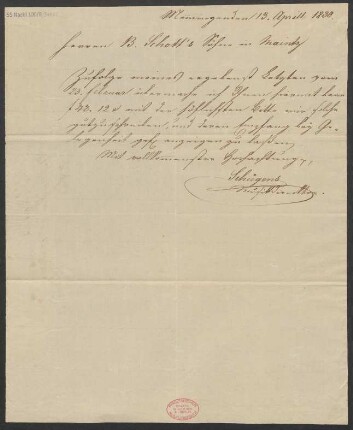 Memmingen den 13. Aprill 1830.
Herren B. Schott's Söhne in Mainz
Zufolge meines ergebenst Letzten vom
23. übermache ich Ihnen hiemit baar
f 42. 12 x mit der höflichsten Bitte mir solche
gutzuschreiben, und deren Empfang bey Ge-
legenheit gefl. anzeigen zu lassen.
Mit vollkommenster Hochachtung,